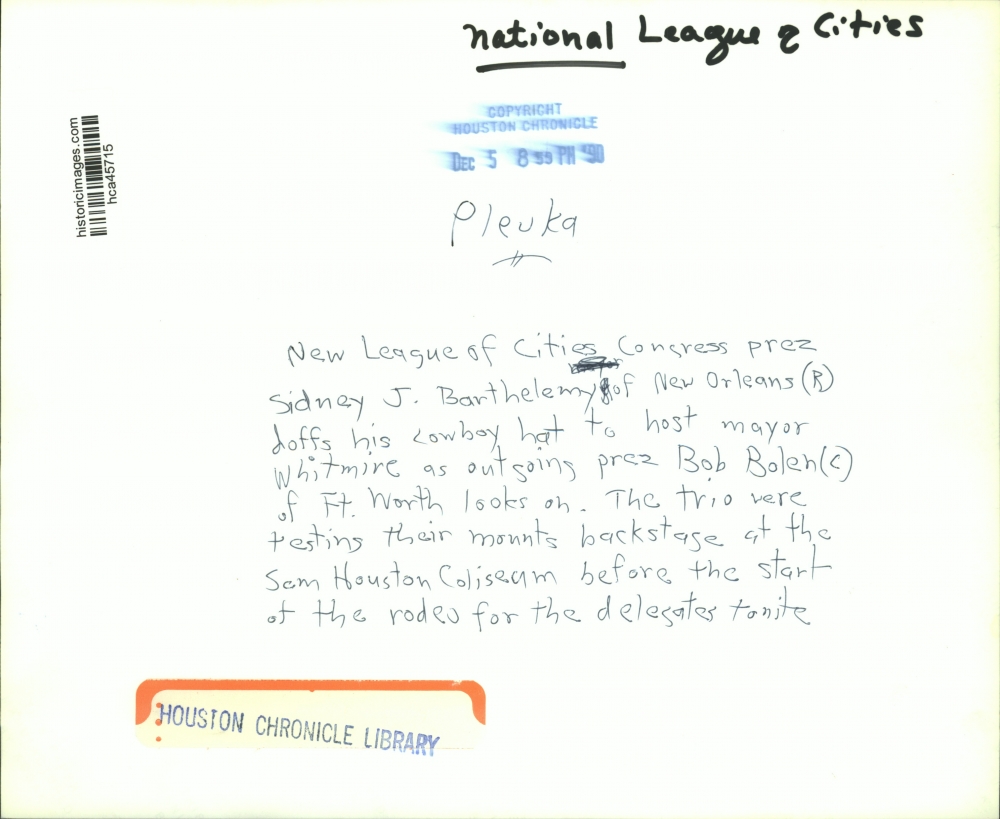 national League of Cities
COPYRIGHT
HOUSTON CHRONICLE
DEC 5 8 59 PM '90
historicimages.com
hca45715
Pleuka
New League of Cities Congress prez
Sidney J. Barthelemy of New Orleans (R)
doffs his cowboy hat to host mayor
Whitmire as outgoing prez Bob Bolen (C)
of Ft. Worth looks on. The trio were
testing their mounts backstage at the
Sam Houston Coliseum before the start
of the rodeo for the delegates tonite
HOUSTON CHRONICLE LIBRARY